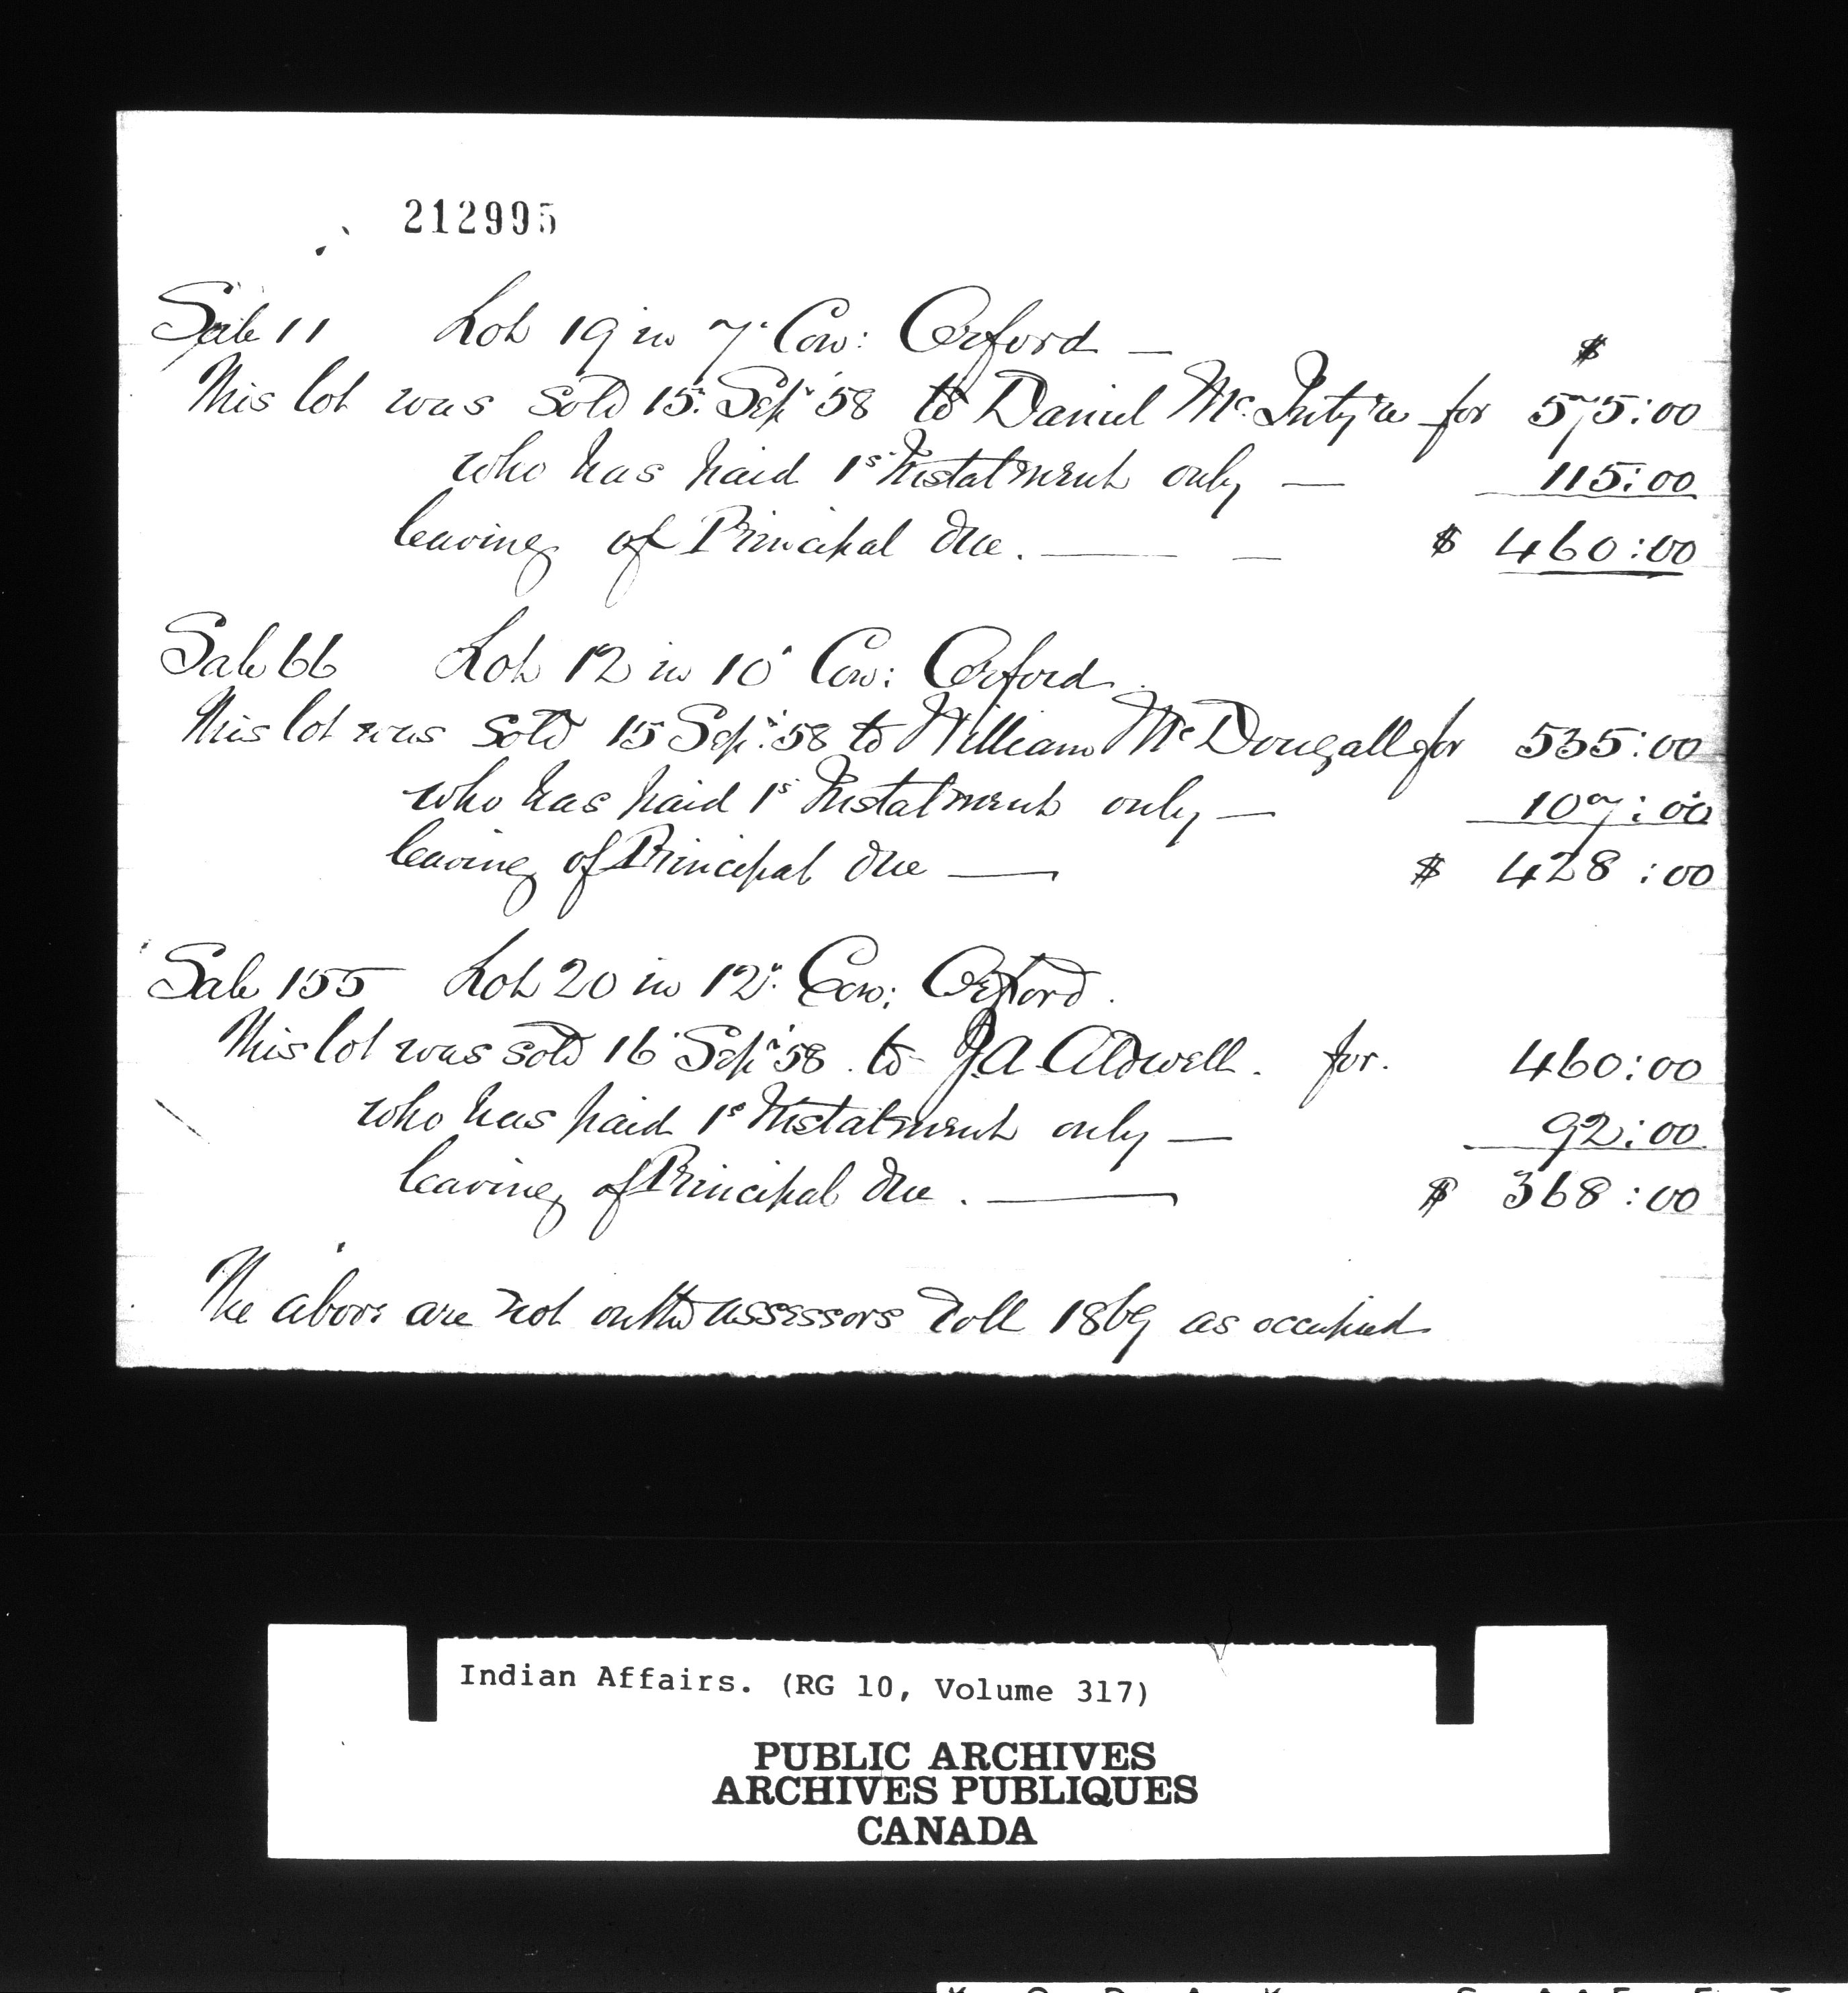 212995
Sale 11 Lot 19 in 7. Con: Orford — $
This lot was sold 15. Sepr 58 to Daniel McIntyre for 575:00
who has paid 1st Instalment only — 115:00
leaving of Principal due. — — $ 460:00
Sale 66 Lot 12 in 10 Con: Orford.
This lot was sold 15 Sepr: 58 to William McDougall for 535:00
who has paid 1st Instalment only — 107:00
leaving of Principal due — $ 428:00
Sale 155 Lot 20 in 12. Con: Orford.
This lot was sold 16 Sepr 58. to J.A. Aldwell. for. 460:00
who has paid 1st Instalment only — 92:00
leaving of Principal due. — $ 368:00
The above are not on the assessors roll 1869 as occupied
Indian Affairs. (RG 10, Volume 317)
PUBLIC ARCHIVES
ARCHIVES PUBLIQUES
CANADA